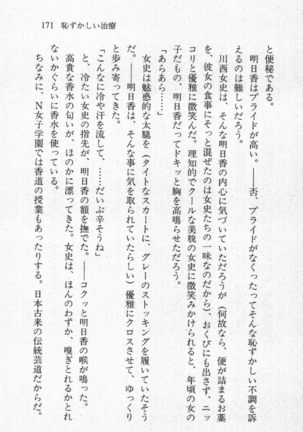 171 恥ずかしい治療
と便秘である。
明日香はプライドが高い。――否、プライドがなくったってそんな恥ずかしい不調を訴
えるのは難しいだろう。
川西女史は、そんな明日香の内心に気づいていただろうが（何故なら、便が詰まるお薬
を、彼女の食事にそっと混ぜたのは女史たちの一味なのだから）、おくびにも出さず、ニッ
コリと優雅に微笑んだ。理知的でクールな美貌の女史に微笑みかけられると、年頃の女の
子だもの、明日香だってドキッと胸を高鳴らせただろう。
「あらあら……」
女史は魅惑的な太腿を（タイトなスカートに、グレーのストッキングを履いていたそう
だ。――明日香は、そんな事に気を取られていたらしい）優雅にクロスさせて、ゆっくり
と歩み寄ってきた。
「こんなに冷や汗を流して、……だいぶ辛そうね」
と、冷たい女史の指先が、明日香の額を撫でた。――コクッと明日香の喉が鳴った。
高貴な香水の匂いが、ほのかに漂ってきた。女史は、ほんのわずか、嗅ぎとれるかとれ
ないかぐらいに香水を使っている。
ちなみに、N女子学園では香道の授業もあったりする。日本古来の伝統芸道だからだ。